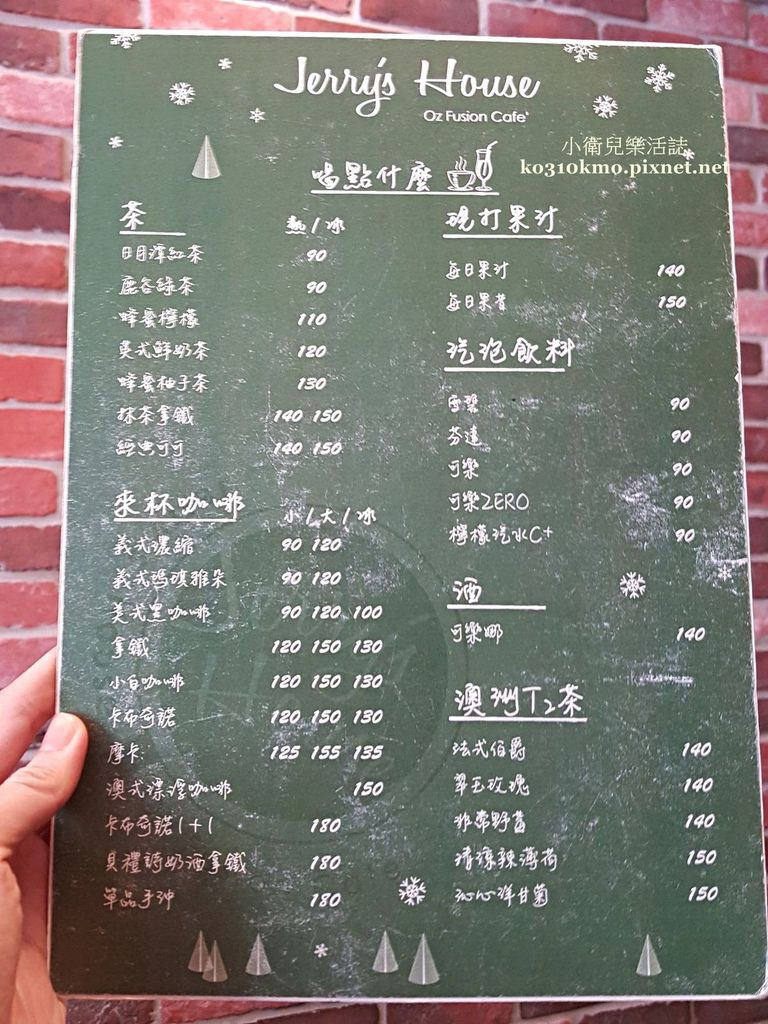 Jerry's House
Oz Fusion Cafe'
小衛兒樂活誌
ko310kmo.pixnet.net
喝點什麼
茶 熱/冰
日月潭紅茶 90
鹿谷綠茶 90
蜂蜜檸檬 110
英式鮮奶茶 120
蜂蜜柚子茶 130
抹茶拿鐵 140 150
經典可可 140 150
來杯咖啡 小/大/冰
義式濃縮 90 120
義式瑪琪雅朵 90 120
美式黑咖啡 90 120 100
拿鐵 120 150 130
小白咖啡 120 150 130
卡布奇諾 120 150 130
摩卡 125 155 135
澳式漂浮咖啡 150
卡布奇諾1+1 180
貝禮詩奶酒拿鐵 180
單品手沖 180
現打果汁
每日果汁 140
每日果昔 150
汽泡飲料
雪碧 90
芬達 90
可樂 90
可樂ZERO 90
檸檬汽水C+ 90
酒
可樂娜 140
澳洲T2茶
法式伯爵 140
翠玉玫瑰 140
非常野莓 140
清涼辣薄荷 150
沁心洋甘菊 150